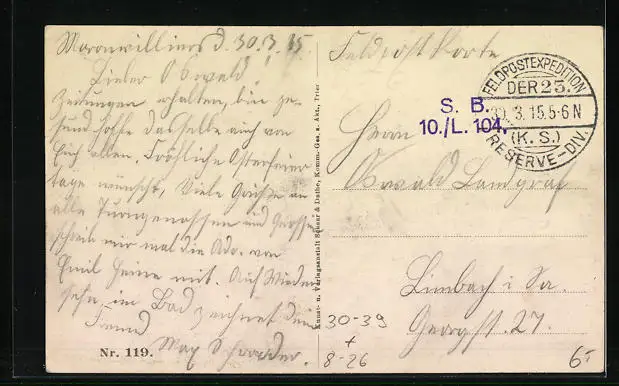 Maranwilliers d. 30.3.15
Lieber Oswald!
Zeitungen erhalten, bin ge-
sund hoffe dasselbe auch von
Euch allen. Fröhliche Osterfeier
tage wünscht, Viele Grüße an
alle Turngenossen und Genossen
schreib mir mal die Adr. von
Emil Heine mit. Auf Wieder
sehn im Bad zeichnet dein
Freund
Max Schrader.
Nr. 119.
Kunst- u. Verlagsanstalt Schaar & Dathe, Komm.-Ges. a. Akt., Trier
Feldpost Karte
FELDPOSTEXPEDITION
DER 23.
30.3.15.5-6N
(K. S.)
RESERVE-DIV.
S. B.
10./L. 104.
Herrn
Oswald Landgraf
Limbach i Sa.
Georgst. 27.
30-39
+
8-26
6,-